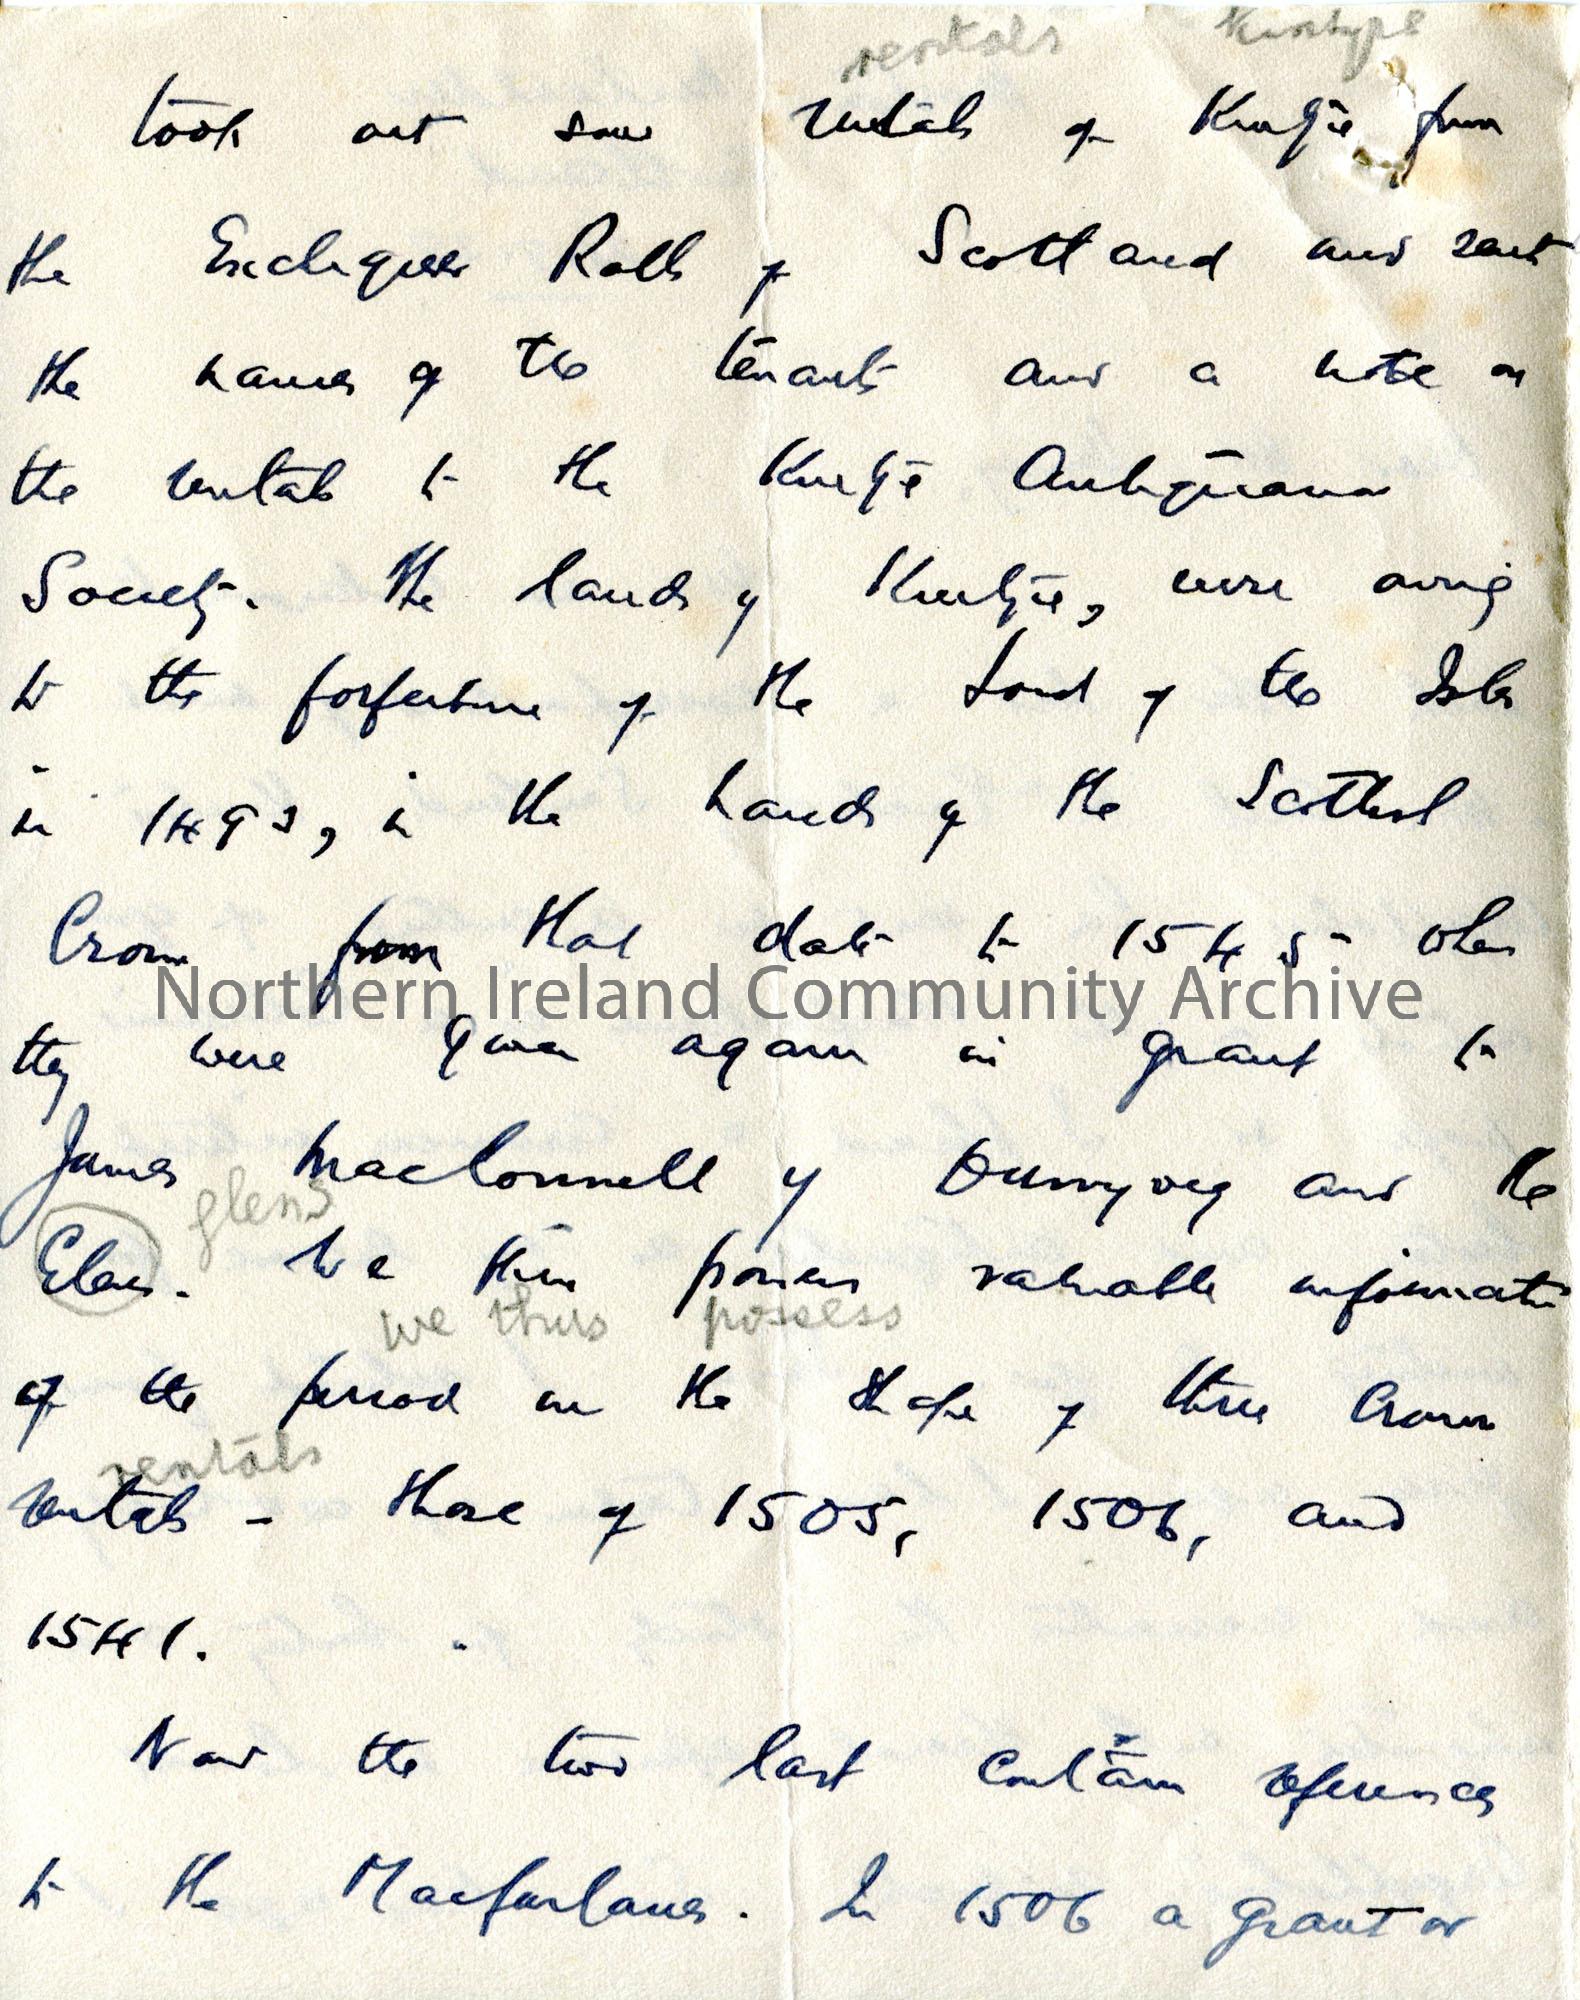 rentals Kintyre
took out some rentals of Kintyre from
the Exchequer Rolls of Scotland and sent
the names of the tenants and a note on
the rentals to the Kintyre Antiquarian
Society. The lands of Kintyre, were owing
to the forfeiture of the Lord of the Isles
in 1493, in the hands of the Scottish
Crown from that date to 1545 when
Northern Ireland Community Archive
they were given again in grant to
James MacConnell of Dunnyveg and the
glens
Glens. We thus possess valuable information
we thus possess
of the period in the shape of three Crown
rentals
rentals - those of 1505, 1506, and
1541.
Now the two last contain references
to the Macfarlanes. In 1506 a grant or